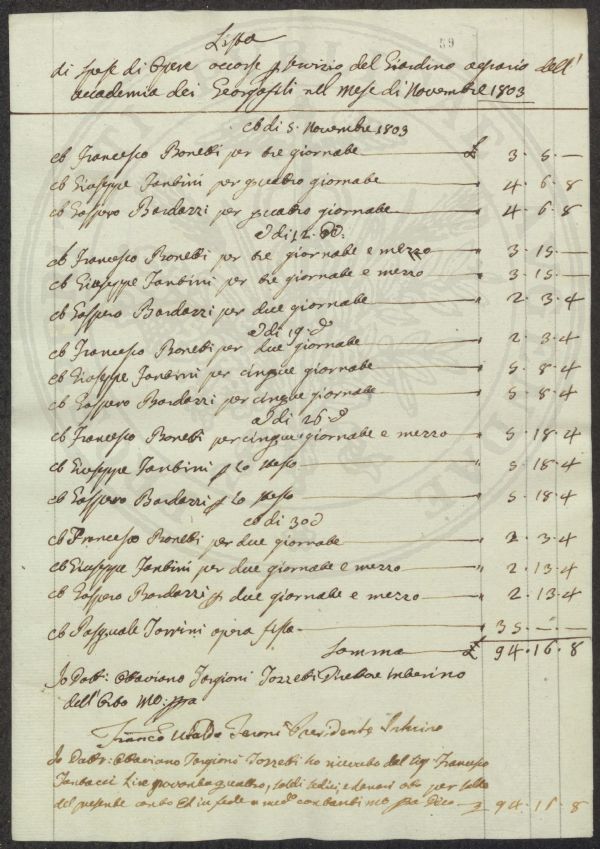 59
Lista
di Spese di Opere occorse p servizio del Giardino agrario dell'
accademia dei Georgofili nel mese di Novembre 1803
a di 5. Novembre 1803
a Francesco Bonetti per tre giornate £ 3. 5. —
a Giuseppe Tantini per quattro giornate " 4. 6. 8
a Gaspero Bardazzi per quattro giornate " 4. 6. 8
a di 12. do:
a Francesco Bonetti per tre giornate e mezzo " 3. 15. —
a Giuseppe Tantini per tre giornate e mezzo " 3. 15. —
a Gaspero Bardazzi per due giornate " 2. 3. 4
a di 19. do
a Francesco Bonetti per due giornate " 2. 3. 4
a Giuseppe Tantini per cinque giornate " 5. 8. 4
a Gaspero Bardazzi per cinque giornate " 5. 8. 4
a di 26. do
a Francesco Bonetti per cinque giornate e mezzo " 5. 18. 4
a Giuseppe Tantini p lo stesso " 5. 18. 4
a Gaspero Bardazzi p lo stesso " 5. 18. 4
a di 30 do
a Francesco Bonetti per due giornate " 2. 3. 4
a Giuseppe Tantini per due giornate e mezzo " 2. 13. 4
a Gaspero Bardazzi p due giornate e mezzo " 2. 13. 4
a Pasquale Torrini opera fissa " 35. — . —
Somma £ 94. 16. 8
Io Dott: Ottaviano Targioni Tozzetti Direttore Interino
dell'Orto Mo: ppa
Franco Ubaldo Feroni Presidente Interino
Io Dottr: Ottaviano Targioni Tozzetti ho ricevuto dal Sig Francesco
Lire novantaquattro, soldi sedici, e denari otto per saldo
del presente conto Ed in fede mo ppa Dico £ 94. 16. 8